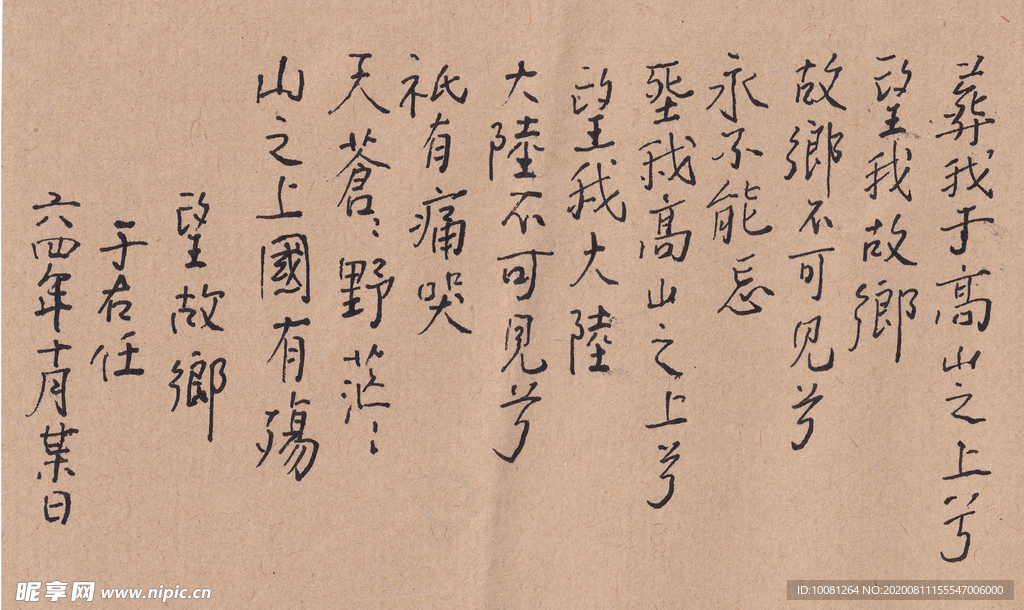 葬我于高山之上兮
望我故鄉
故鄉不可见兮
永不能忘
我高山之上兮
望我大陸
大陸不可見兮
祇有痛哭
天蒼〻野茫〻
山之上國有殤
望故鄉
于右任
六四年十月某日
昵享网 www.nipic.cn
ID:10081264 NO:20200811155547006000